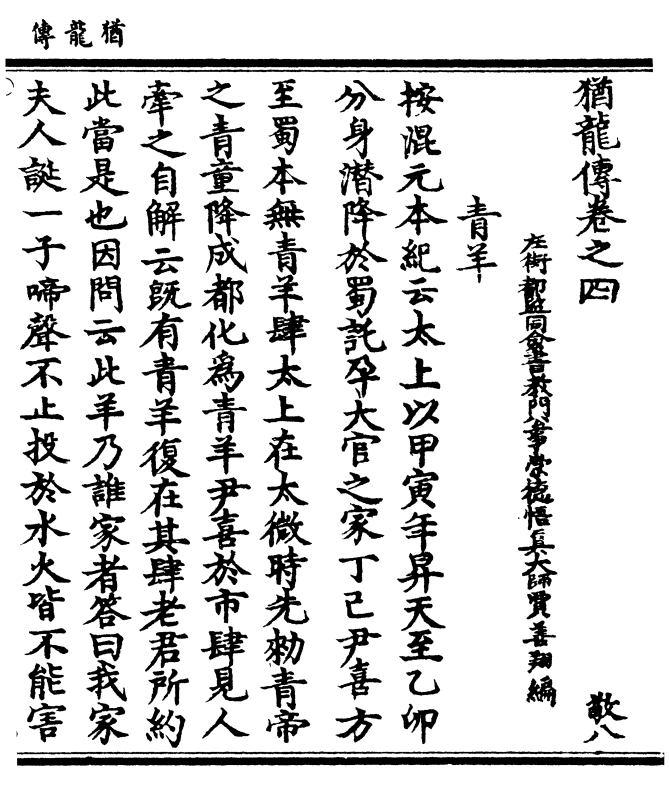 猶龍傳
猶龍傳卷之四
敬八
左街都監同僉書教門公事崇德悟真大師賈善翔編
青羊
按混元本紀云太上以甲寅年昇天至乙卯
分身潛降於蜀託孕大官之家丁巳尹喜方
至蜀本無青羊肆太上在太微時先勑青帝
之青童降成都化為青羊尹喜於市肆見人
牽之自解云既有青羊復在其肆老君所約
此當是也因問云此羊乃誰家者答曰我家
夫人誕一子啼聲不止投於水火皆不能害